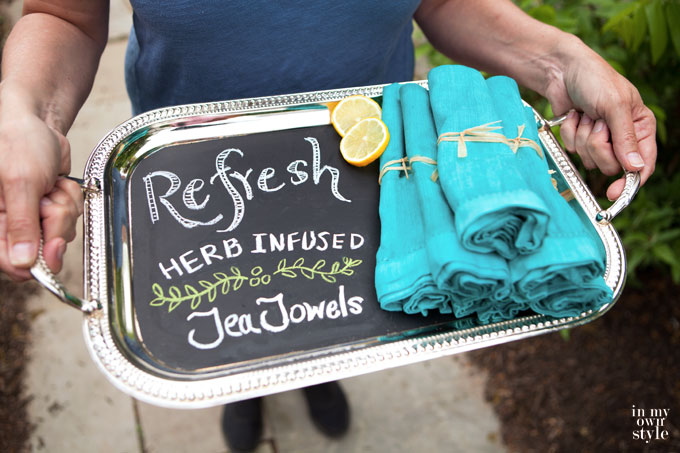 Refresh
HERB INFUSED
Tea Towels
in my
own
style